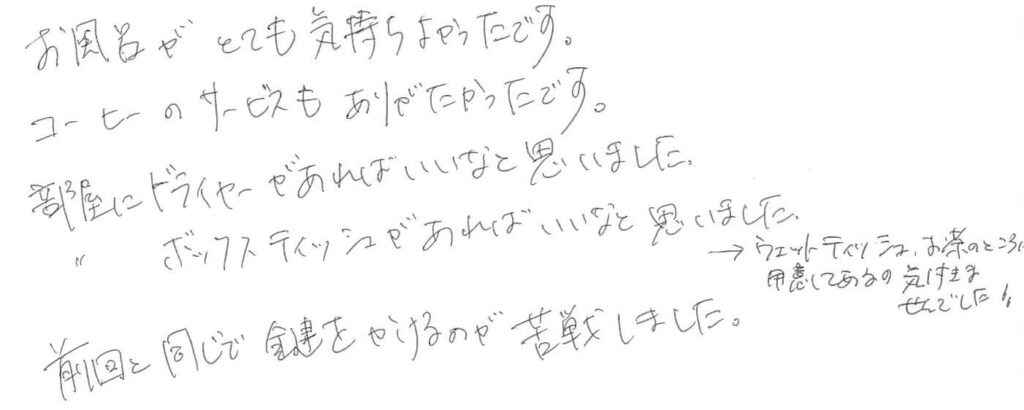 お風呂が とても気持ちよかったです。
コーヒーの サービスも ありがたかったです。
部屋にドライヤーがあればいいなと思いました。
〃 ボックスティッシュがあればいいなと思いました。
→ ウェットティッシュ、お茶のところに
用意してあるの 気付きま
せんでした
前回と同じで 鍵をかけるのが 苦戦しました。